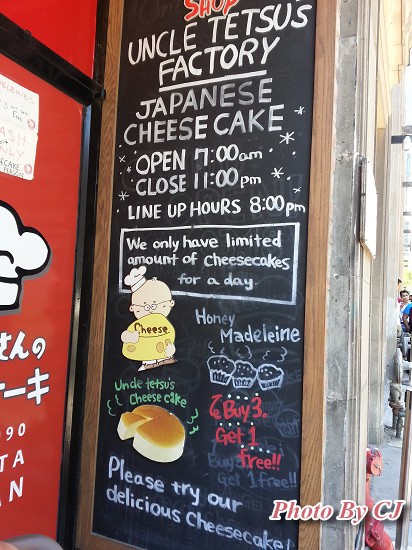 SHOP
UNCLE TETSU'S
FACTORY
JAPANESE
CHEESE CAKE
OPEN 7:00am
CLOSE 11:00pm
LINE UP HOURS 8:00pm
We only have limited
amount of Cheesecakes
for a day.
Cheese
Honey
Madeleine
Uncle tetsu's
Cheese cake
Buy 3
Get 1
free!!
Buy 3
Get 1 free!!
Please try our
delicious Cheesecake!
さんの
ーキ
090
TA
AN
Photo By CJ